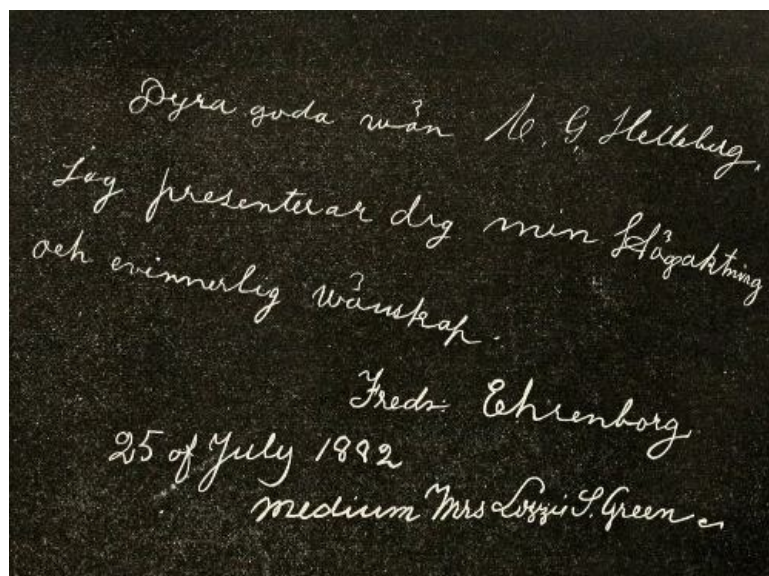 Dyra goda wän C. G. Helleberg.
Jag presenterar dig min Högaktning
och evinnerlig wänskap.
Fredr: Ehrenborg
25 of July 1882
medium Mrs Lizzie S. Green